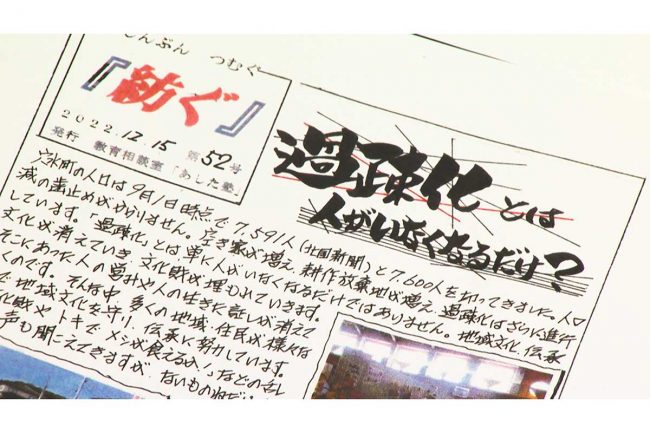 しんぶん つむぐ
『紡ぐ』
2022.12.15 第52号
発行 教育相談室「あした塾」
過疎化とは
人がいなくなるだけ?
穴水町の人口は9月1日時点で7,591人(北国新聞)と7,600人を切ってきました。人口
減の歯止めがかかりません。空き家が増え、耕作放棄地が増え、過疎化はさらに進行
しています。「過疎化」とは単に人がいなくなるだけではありません。地域文化、伝承
文化が消えていき、文化財が埋もれていきます。
そこにあった人の営みや人の生きた証しが消えて
くのです。そんな中、多くの地域住民が様々な
で地域文化を守り、伝承に努力しています。
化財やトキでメシが食えるか!」などの
声も聞こえてきますが、ないものねだ